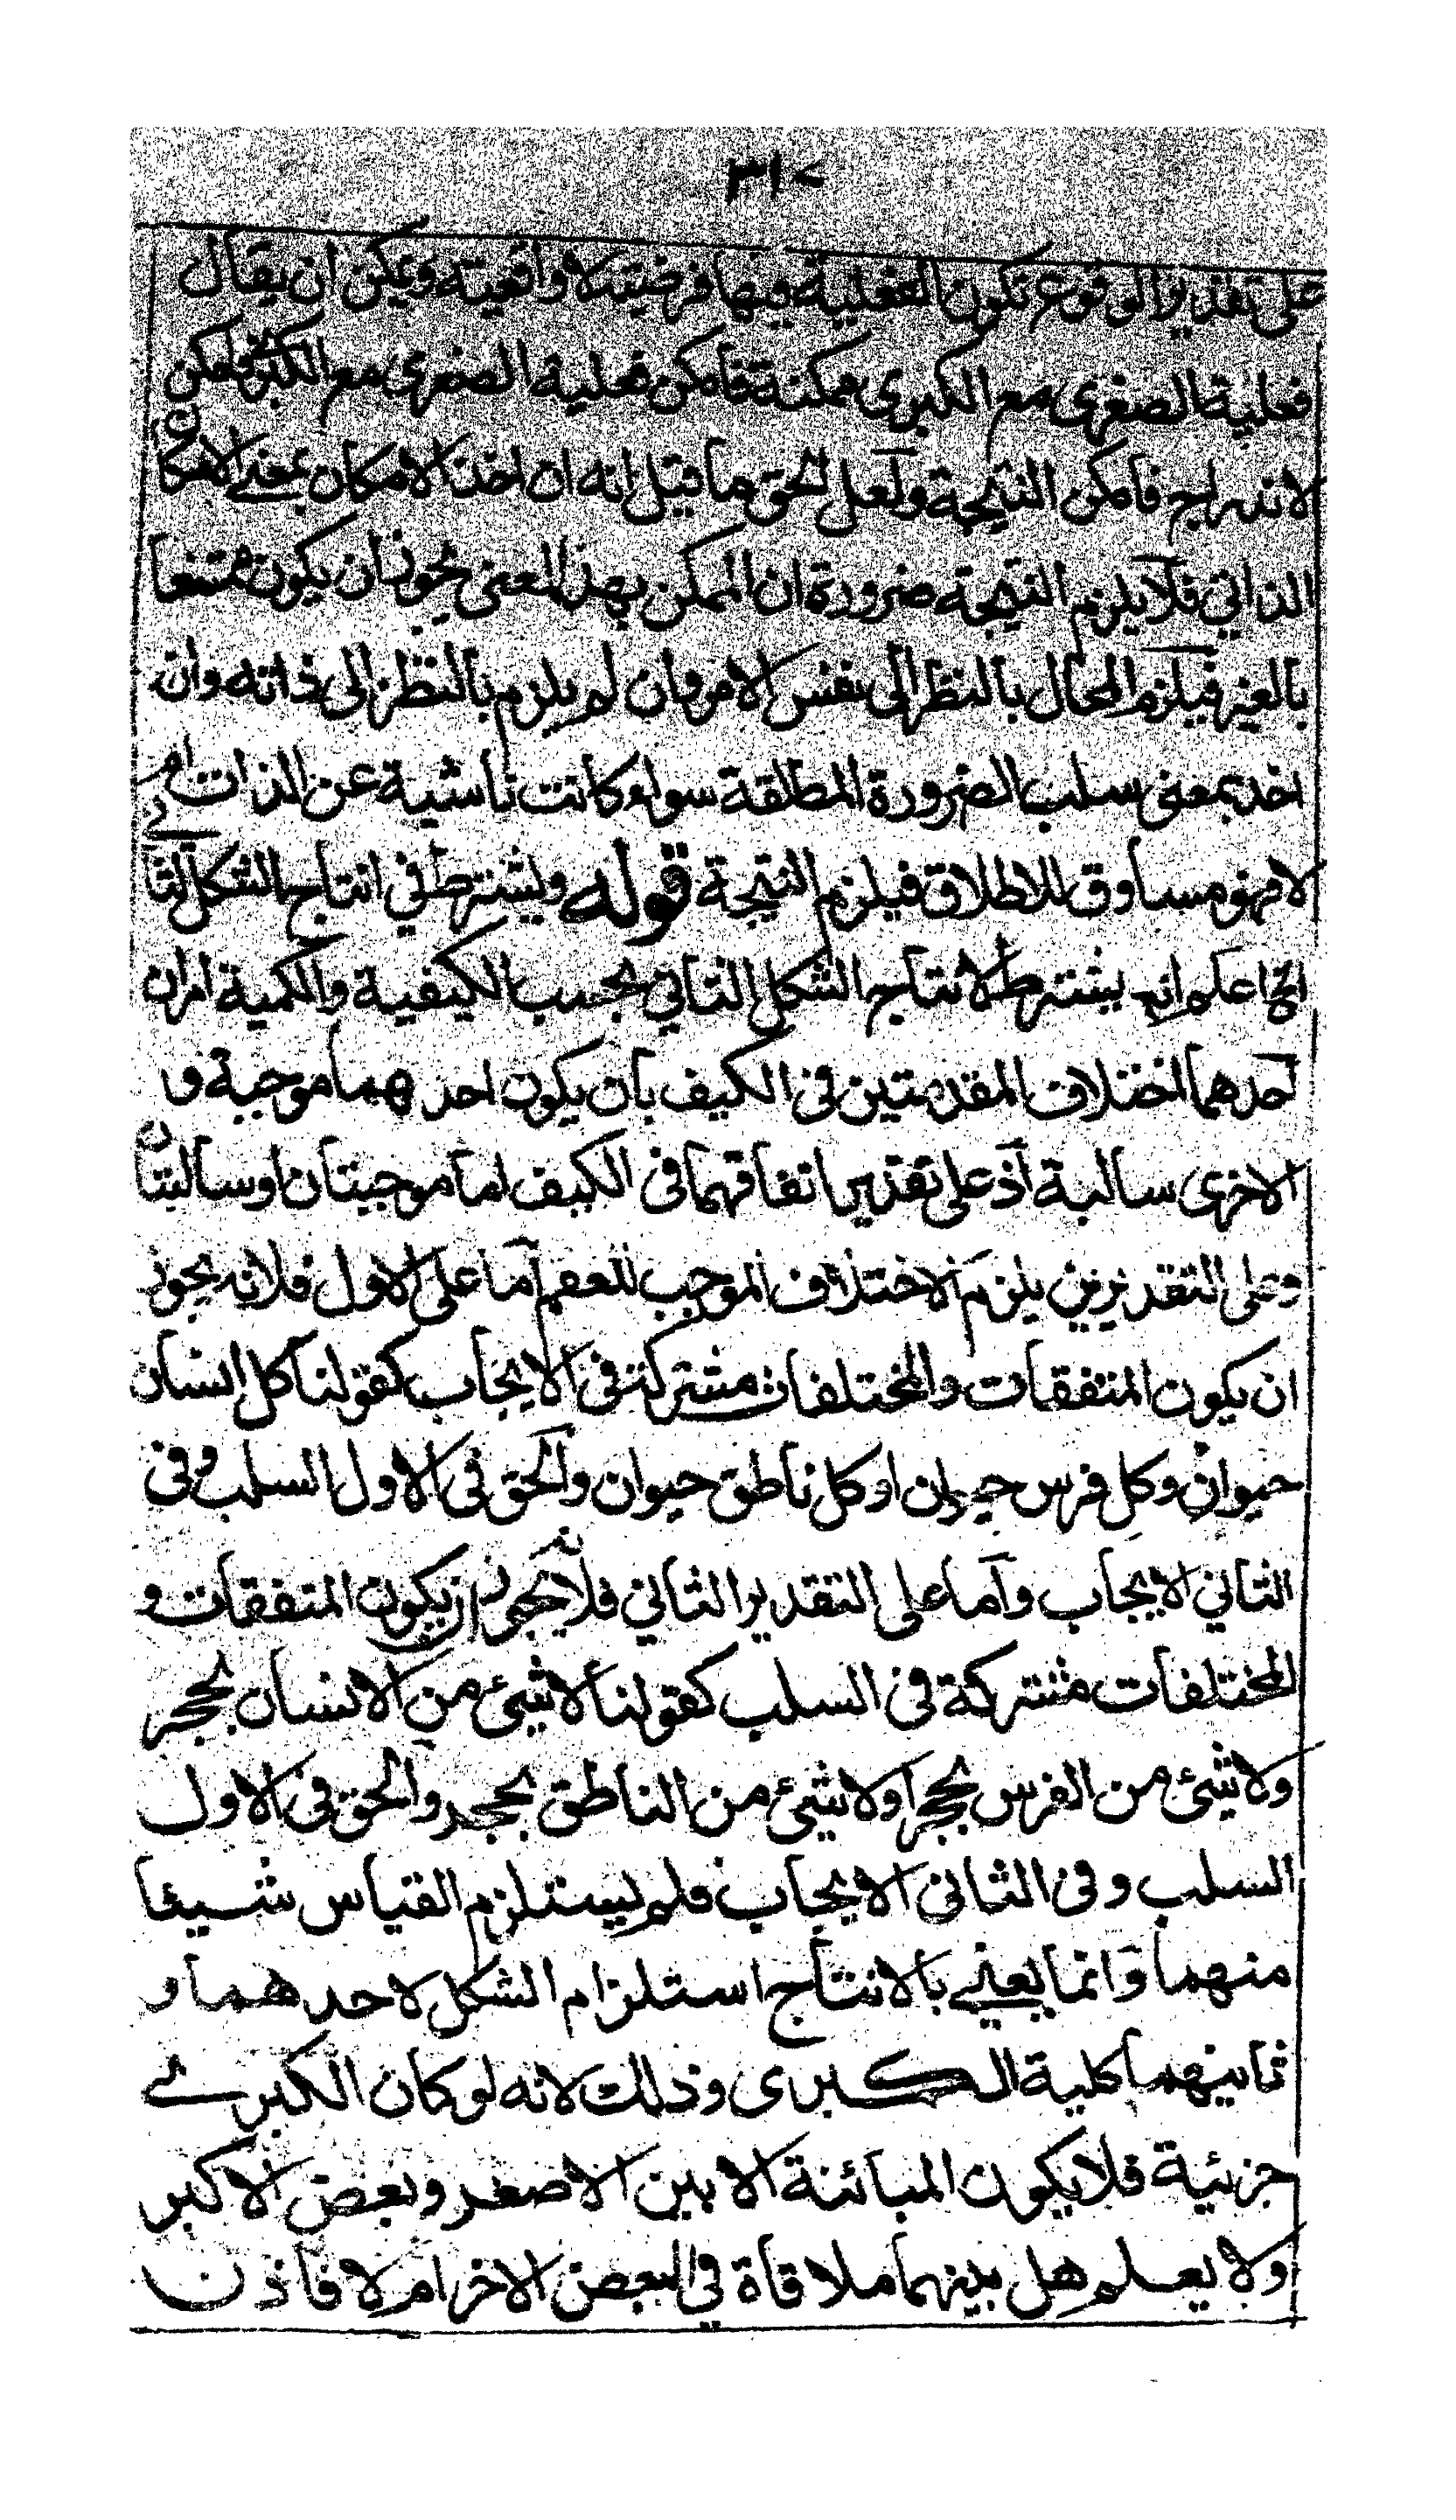 ٣١٠
على تقدير الوقوع تكون الفعلية فيها فرضيته لا واقعيته ويمكن ان يقال
فعلية الصغرى مع الكبرى ممكنة فامكن فعلية الصغرى مع الكبرى فامكن
لاندراج فامكن النتيجة ولعل الحق ما قيل انه ان اخذ الامكان بمعنى الامكان
الذاتي فلا يلزم النتيجة ضرورة ان الممكن بهذا المعنى يجوز ان يكون ممتنعا
بالغير فيلزم المحال بالنظر الى نفس الامر وان لم يلزم بالنظر الى ذاته وان
اخذ بمعنى سلب الضرورة المطلقة سواء كانت ناشية عن الذات ام
لا فهو مساوق للاطلاق فيلزم النتيجة قوله ويشترط في انتاج الشكل الثاني
الخ اعلم انه يشترط لانتاج الشكل الثاني بحسب الكيفية والكمية امران
احدهما اختلاف المقدمتين في الكيف بان يكون احدهما موجبة و
الاخرى سالبة اذ على تقدير اتفاقهما في الكيف اما موجبتان او سالبتان
وعلى التقديرين يلزم الاختلاف الموجب للعقم اما على الاول فلانه يجوز
ان يكون المتفقات والمختلفات مشتركة في الايجاب كقولنا كل انسان
حيوان وكل فرس حيوان او كل ناطق حيوان والحق في الاول السلب وفي
الثاني الايجاب واما على التقدير الثاني فلانه يجوز ان يكون المتفقات و
المختلفات مشتركة في السلب كقولنا لا شيئ من الانسان بحجر
ولا شيئ من الفرس بحجر او لا شيئ من الناطق بحجر والحق في الاول
السلب وفي الثاني الايجاب فلم يستلزم القياس شيئا
منهما وانما يعني بالانتاج استلزام الشكل لاحدهما و
ثانيهما كلية الكبرى وذلك لانه لو كان الكبرى
جزئية فلا يكون المبائنة الا بين الاصغر وبعض الاكبر
ولا يعلم هل بينهما ملاقاة في البعض الاخر ام لا فاذن